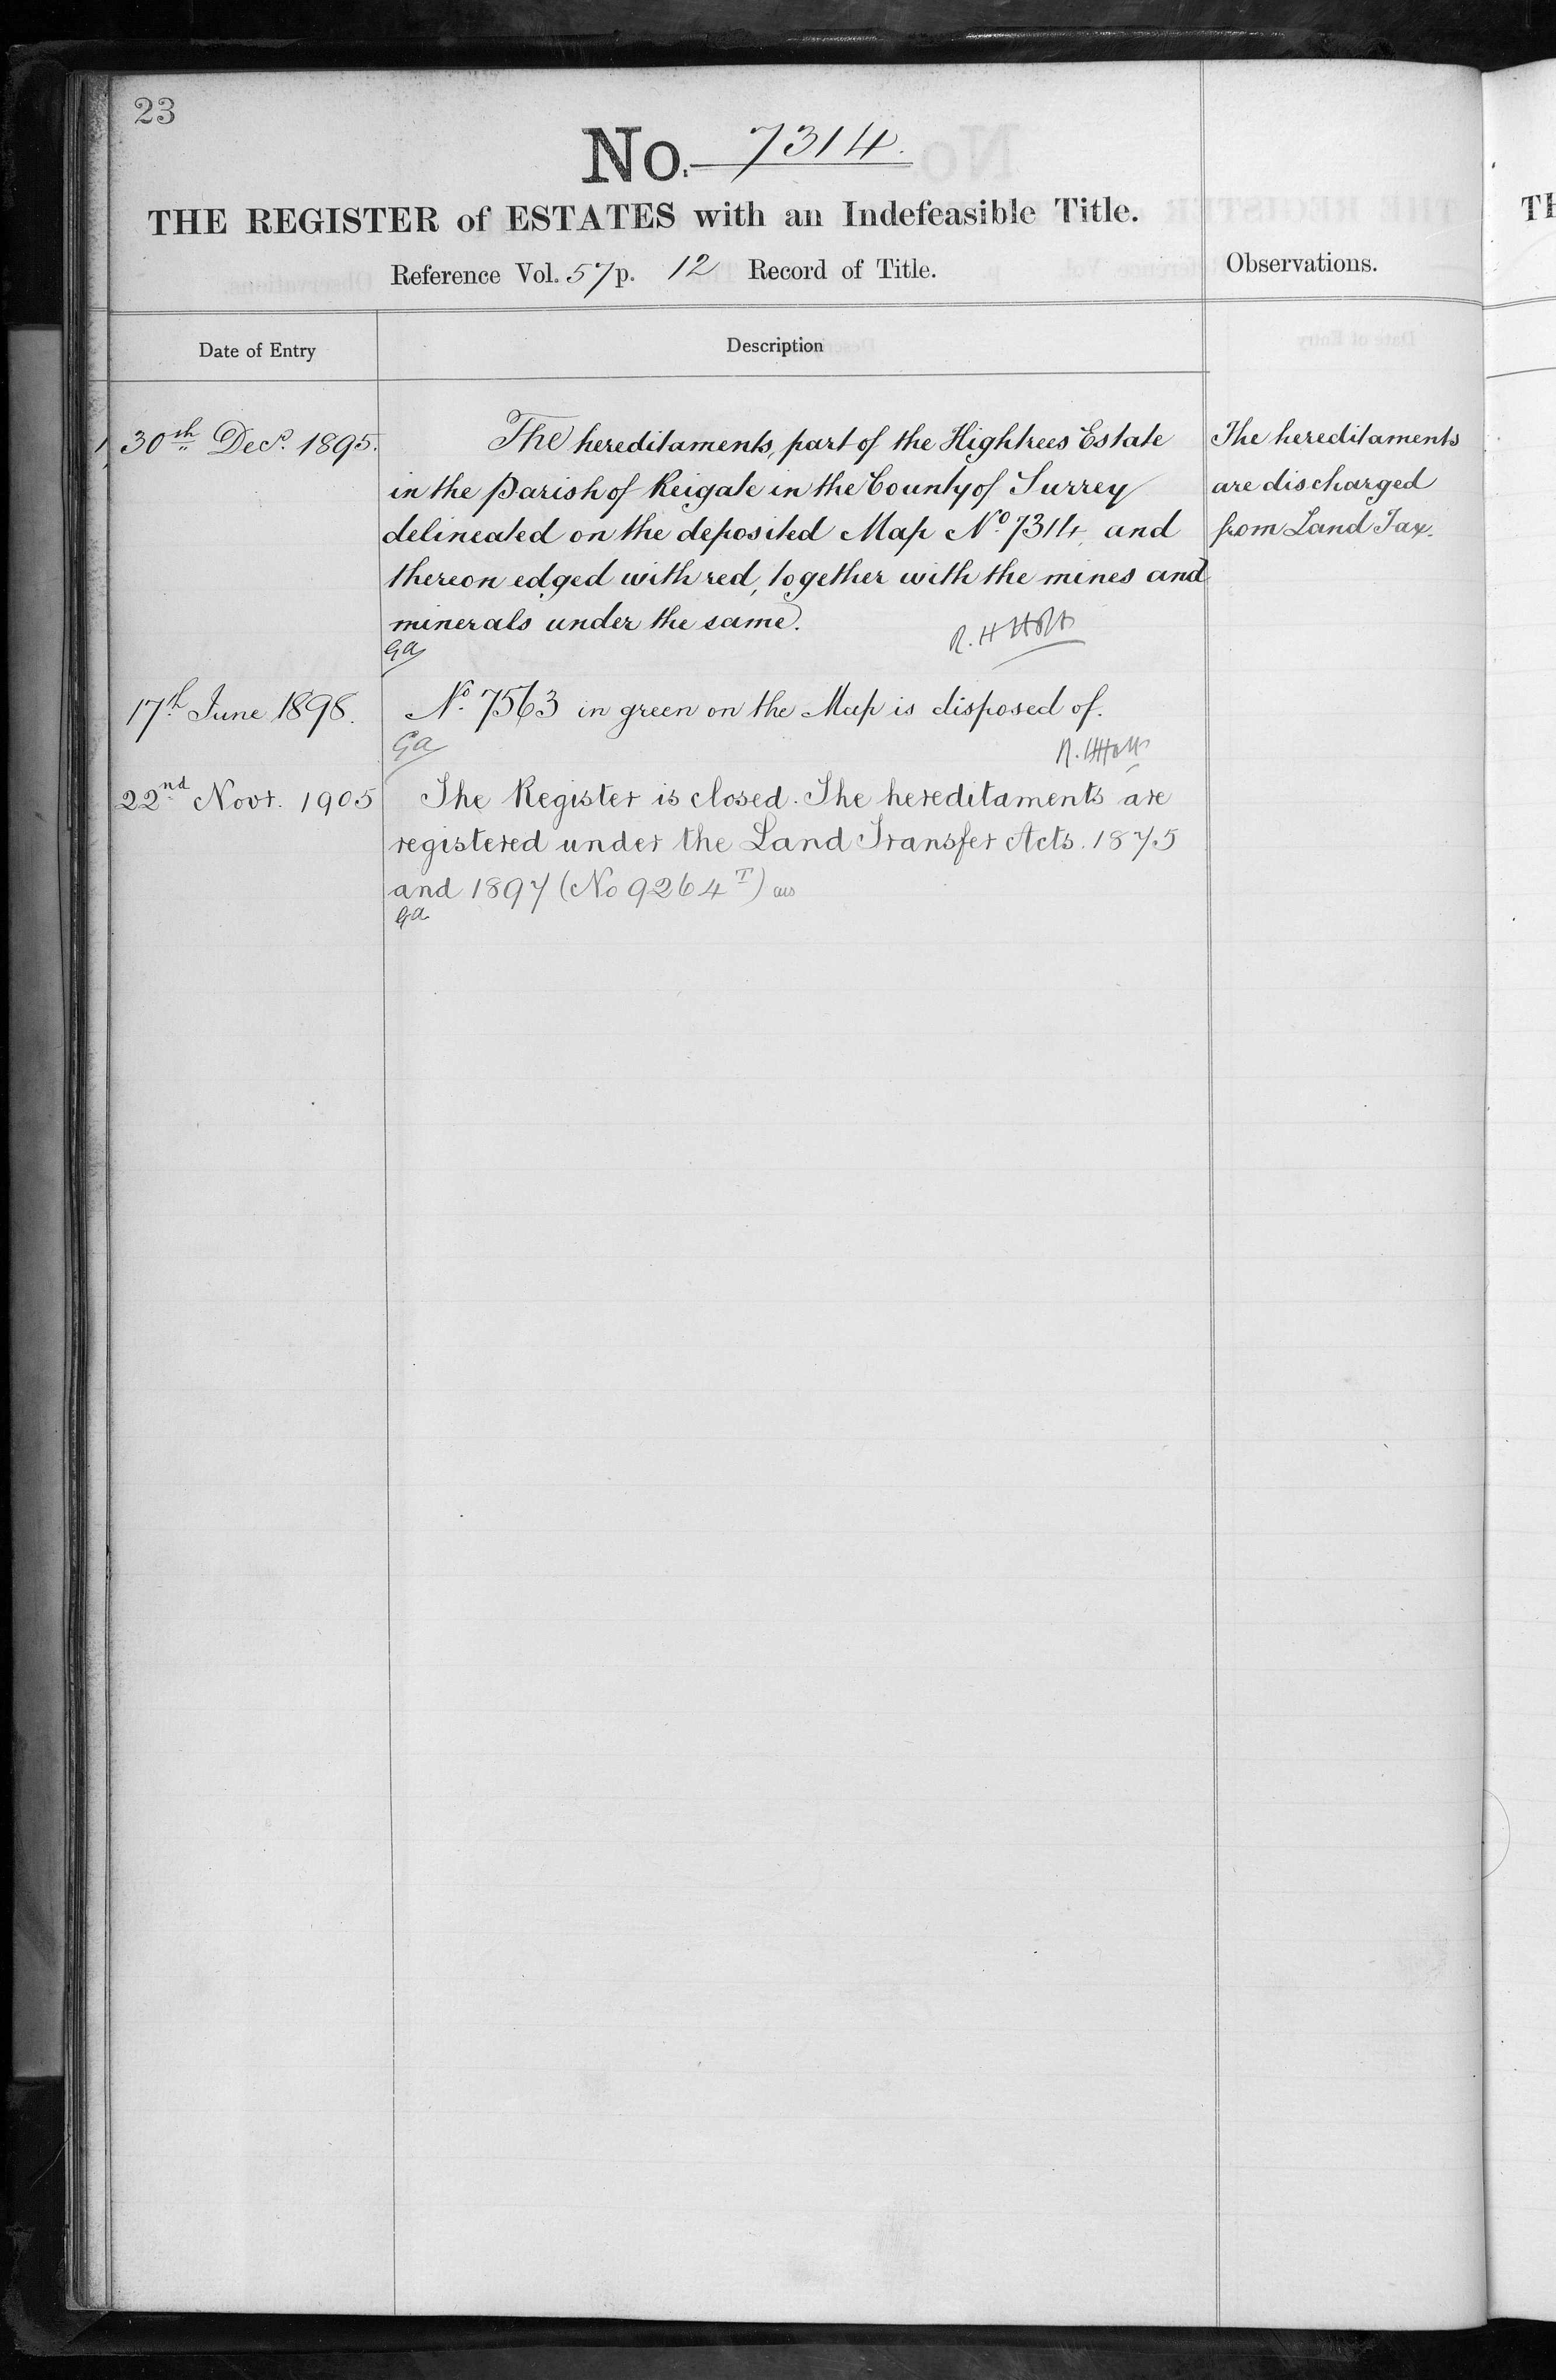 23
No. 7314.
THE REGISTER of ESTATES with an Indefeasible Title.
Reference Vol. 57 p. 12 Record of Title.
Observations.
Date of Entry
Description
1, 30th Decr. 1895.
The hereditaments, part of the Hightrees Estate
in the Parish of Reigate in the County of Surrey
delineated on the deposited Map No. 7314, and
thereon edged with red, together with the mines and
minerals under the same.
Ga
R. H Holt
The hereditaments
are discharged
from Land Tax.
17th June 1898.
No. 7563 in green on the Map is disposed of.
Ga
R. H Holt
22nd Novr. 1905
The Register is closed. The hereditaments are
registered under the Land Transfer Acts. 1875
and 1897 (No 9264 T)
Ga
TH